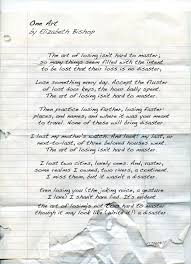 One Art
by Elizabeth Bishop
The art of losing isn't hard to master;
so many things seem filled with the intent
to be lost that their loss is no disaster,
Lose something every day. Accept the fluster
of lost door keys, the hour badly spent.
The art of losing isn't hard to master.
Then practice losing farther, losing faster:
places, and names, and where it was you meant
to travel. None of these will bring disaster.
I lost my mother's watch. And look! my last, or
next-to-last, of three beloved houses went.
The art of losing isn't hard to master.
I lost two cities, lovely ones. And, vaster,
some realms I owned, two rivers, a continent.
I miss them, but it wasn't a disaster.
Even losing you (the joking voice, a gesture
I love) I shan't have lied. It's evident
the art of losing's not too hard to master
though it may look like (Write it!) a disaster.